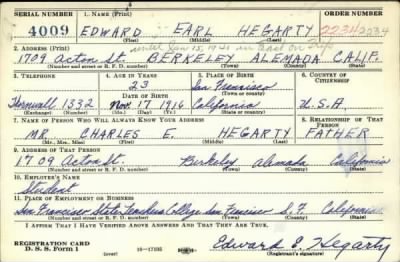 SERIAL NUMBER 1. NAME (Print) ORDER NUMBER
4009 EDWARD EARL HEGARTY 2234 2234
(First) (Middle) (Last)
2. ADDRESS (Print) until Jan 15, 1941 in East on trip
1709 Acton St. BERKELEY ALEMADA CALIF.
(Number and street or R. F. D. number) (Town) (County) (State)
3. TELEPHONE 4. AGE IN YEARS 5. PLACE OF BIRTH 6. COUNTRY OF CITIZENSHIP
23 San Francisco
(Town or county)
DATE OF BIRTH
Thornwall 1332 Nov. 17 1916 California U.S.A.
(Exchange) (Number) (Mo.) (Day) (Yr.) (State or country)
7. NAME OF PERSON WHO WILL ALWAYS KNOW YOUR ADDRESS 8. RELATIONSHIP OF THAT PERSON
MR. CHARLES E. HEGARTY FATHER
(Mr., Mrs., Miss) (First) (Middle) (Last)
9. ADDRESS OF THAT PERSON
1709 Acton St. Berkeley Alemada California
(Number and street or R. F. D. number) (Town) (County) (State)
10. EMPLOYER'S NAME
Student
11. PLACE OF EMPLOYMENT OR BUSINESS
San Francisco State Teachers College San Francisco S.F. California
(Number and street or R. F. D. number) (Town) (County) (State)
I AFFIRM THAT I HAVE VERIFIED ABOVE ANSWERS AND THAT THEY ARE TRUE.
REGISTRATION CARD
D. S. S. Form 1 (over) Edward E. Hegarty
(Registrant's signature)